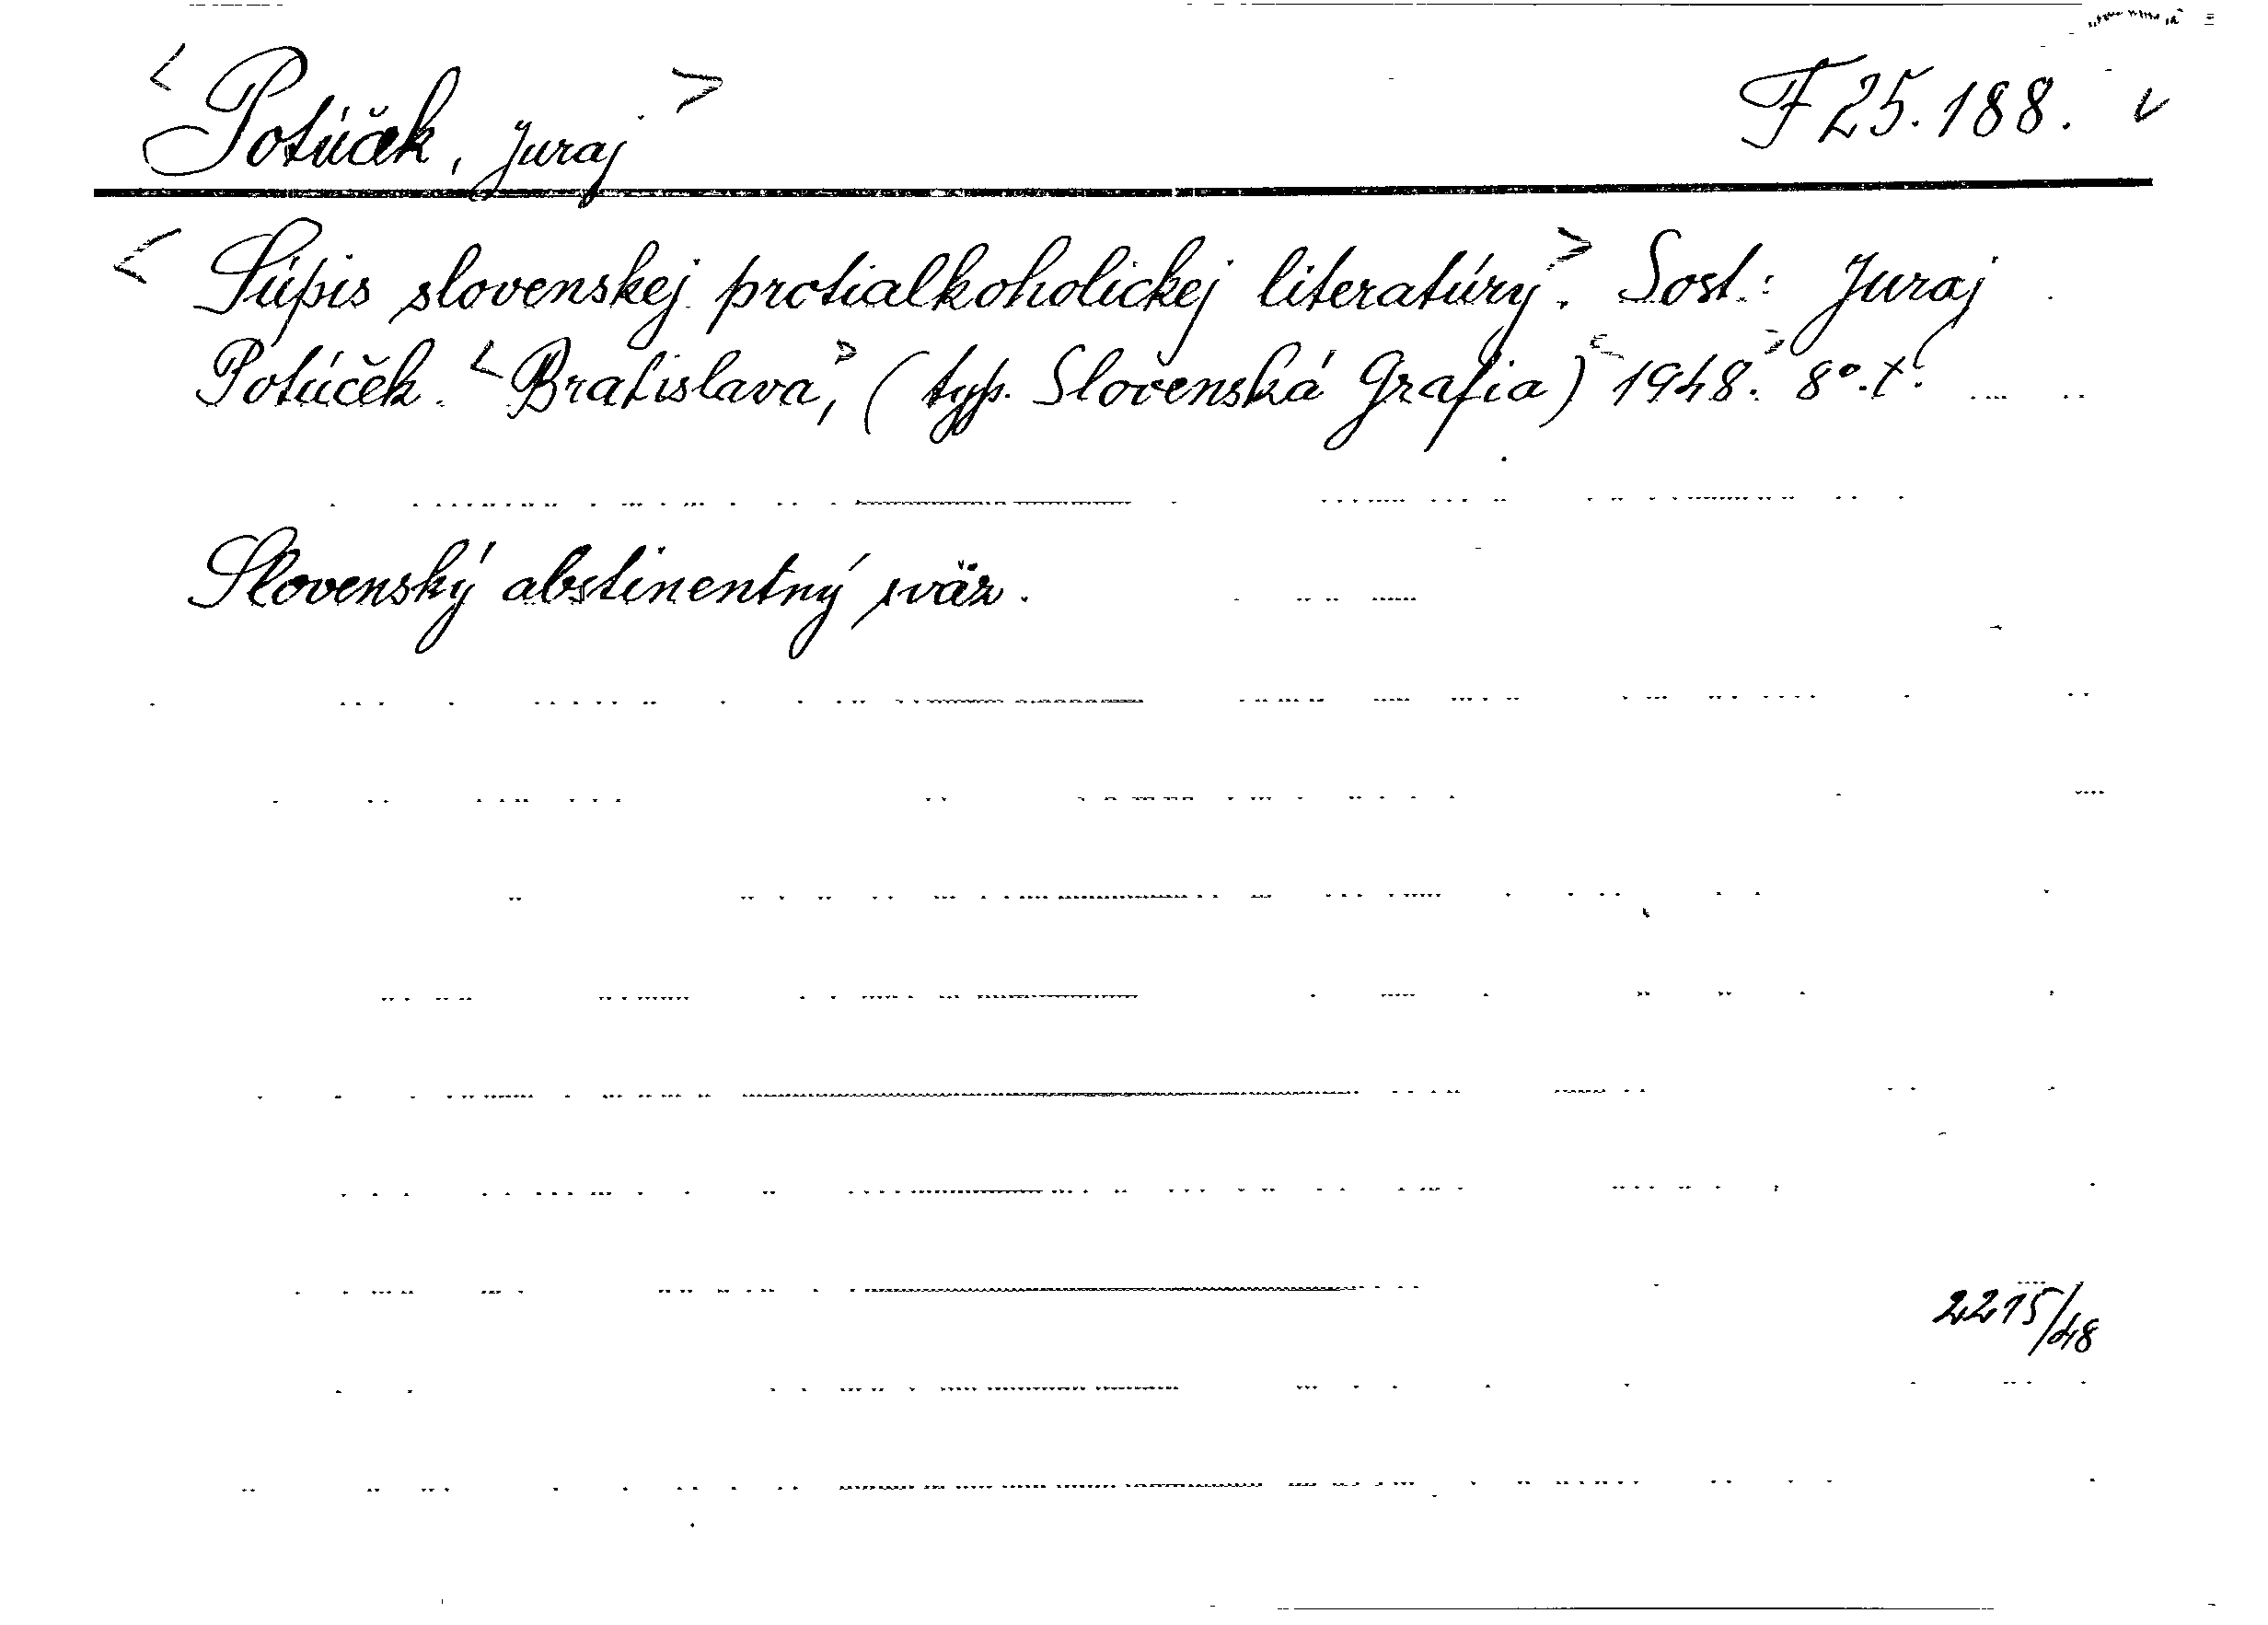 < Potúček, Juraj > F 25.188. v
< Súpis slovenskej protialkoholickej literatúry >. Sost.: Juraj
Potúček. < Bratislava, > (typ. Slovenská Grafia) < 1948. > 8°.
Slovenský abstinentný sväz.
2215/48